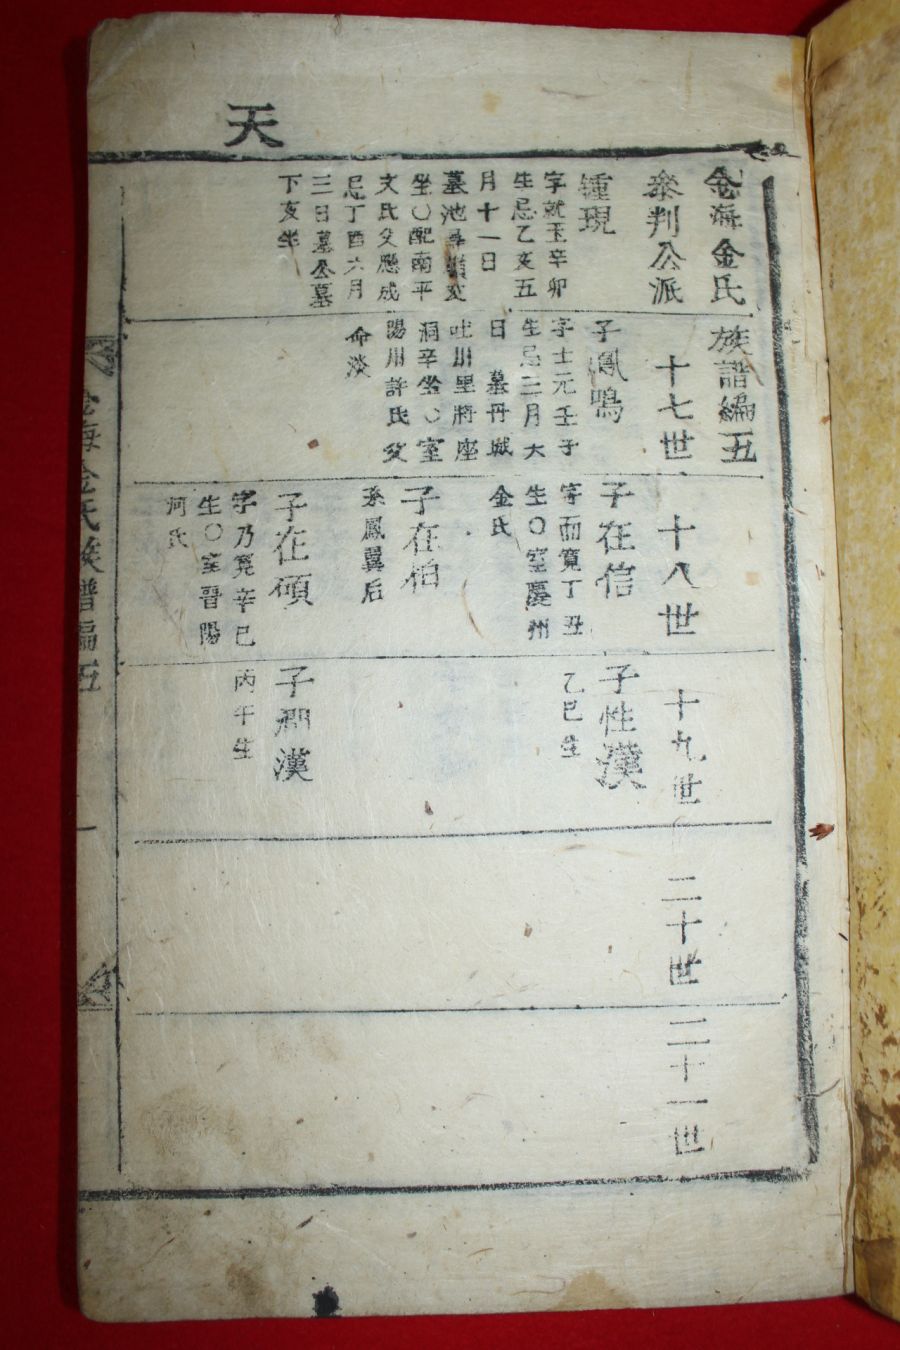 天
金海金氏族譜編五
叅判公派
十七世
十八世
十九世
二十世
二十一世
鍾現
字就玉辛卯
生忌乙亥五
月十一日
墓池尋嶺亥
坐〇配南平
文氏父應成
忌丁酉六月
三日墓公墓
下亥坐
子鳳鳴
字士元壬子
生忌三月六
日墓丹城
吐川里將座
洞辛坐〇室
陽川許氏父
命淡
子在信
字而寬丁丑
生〇室慶州
金氏
子在栢
系鳳翼后
子在碩
字乃寛辛巳
生〇室晋陽
河氏
子性漢
乙巳生
子潤漢
丙午生
金海金氏族譜編五
一